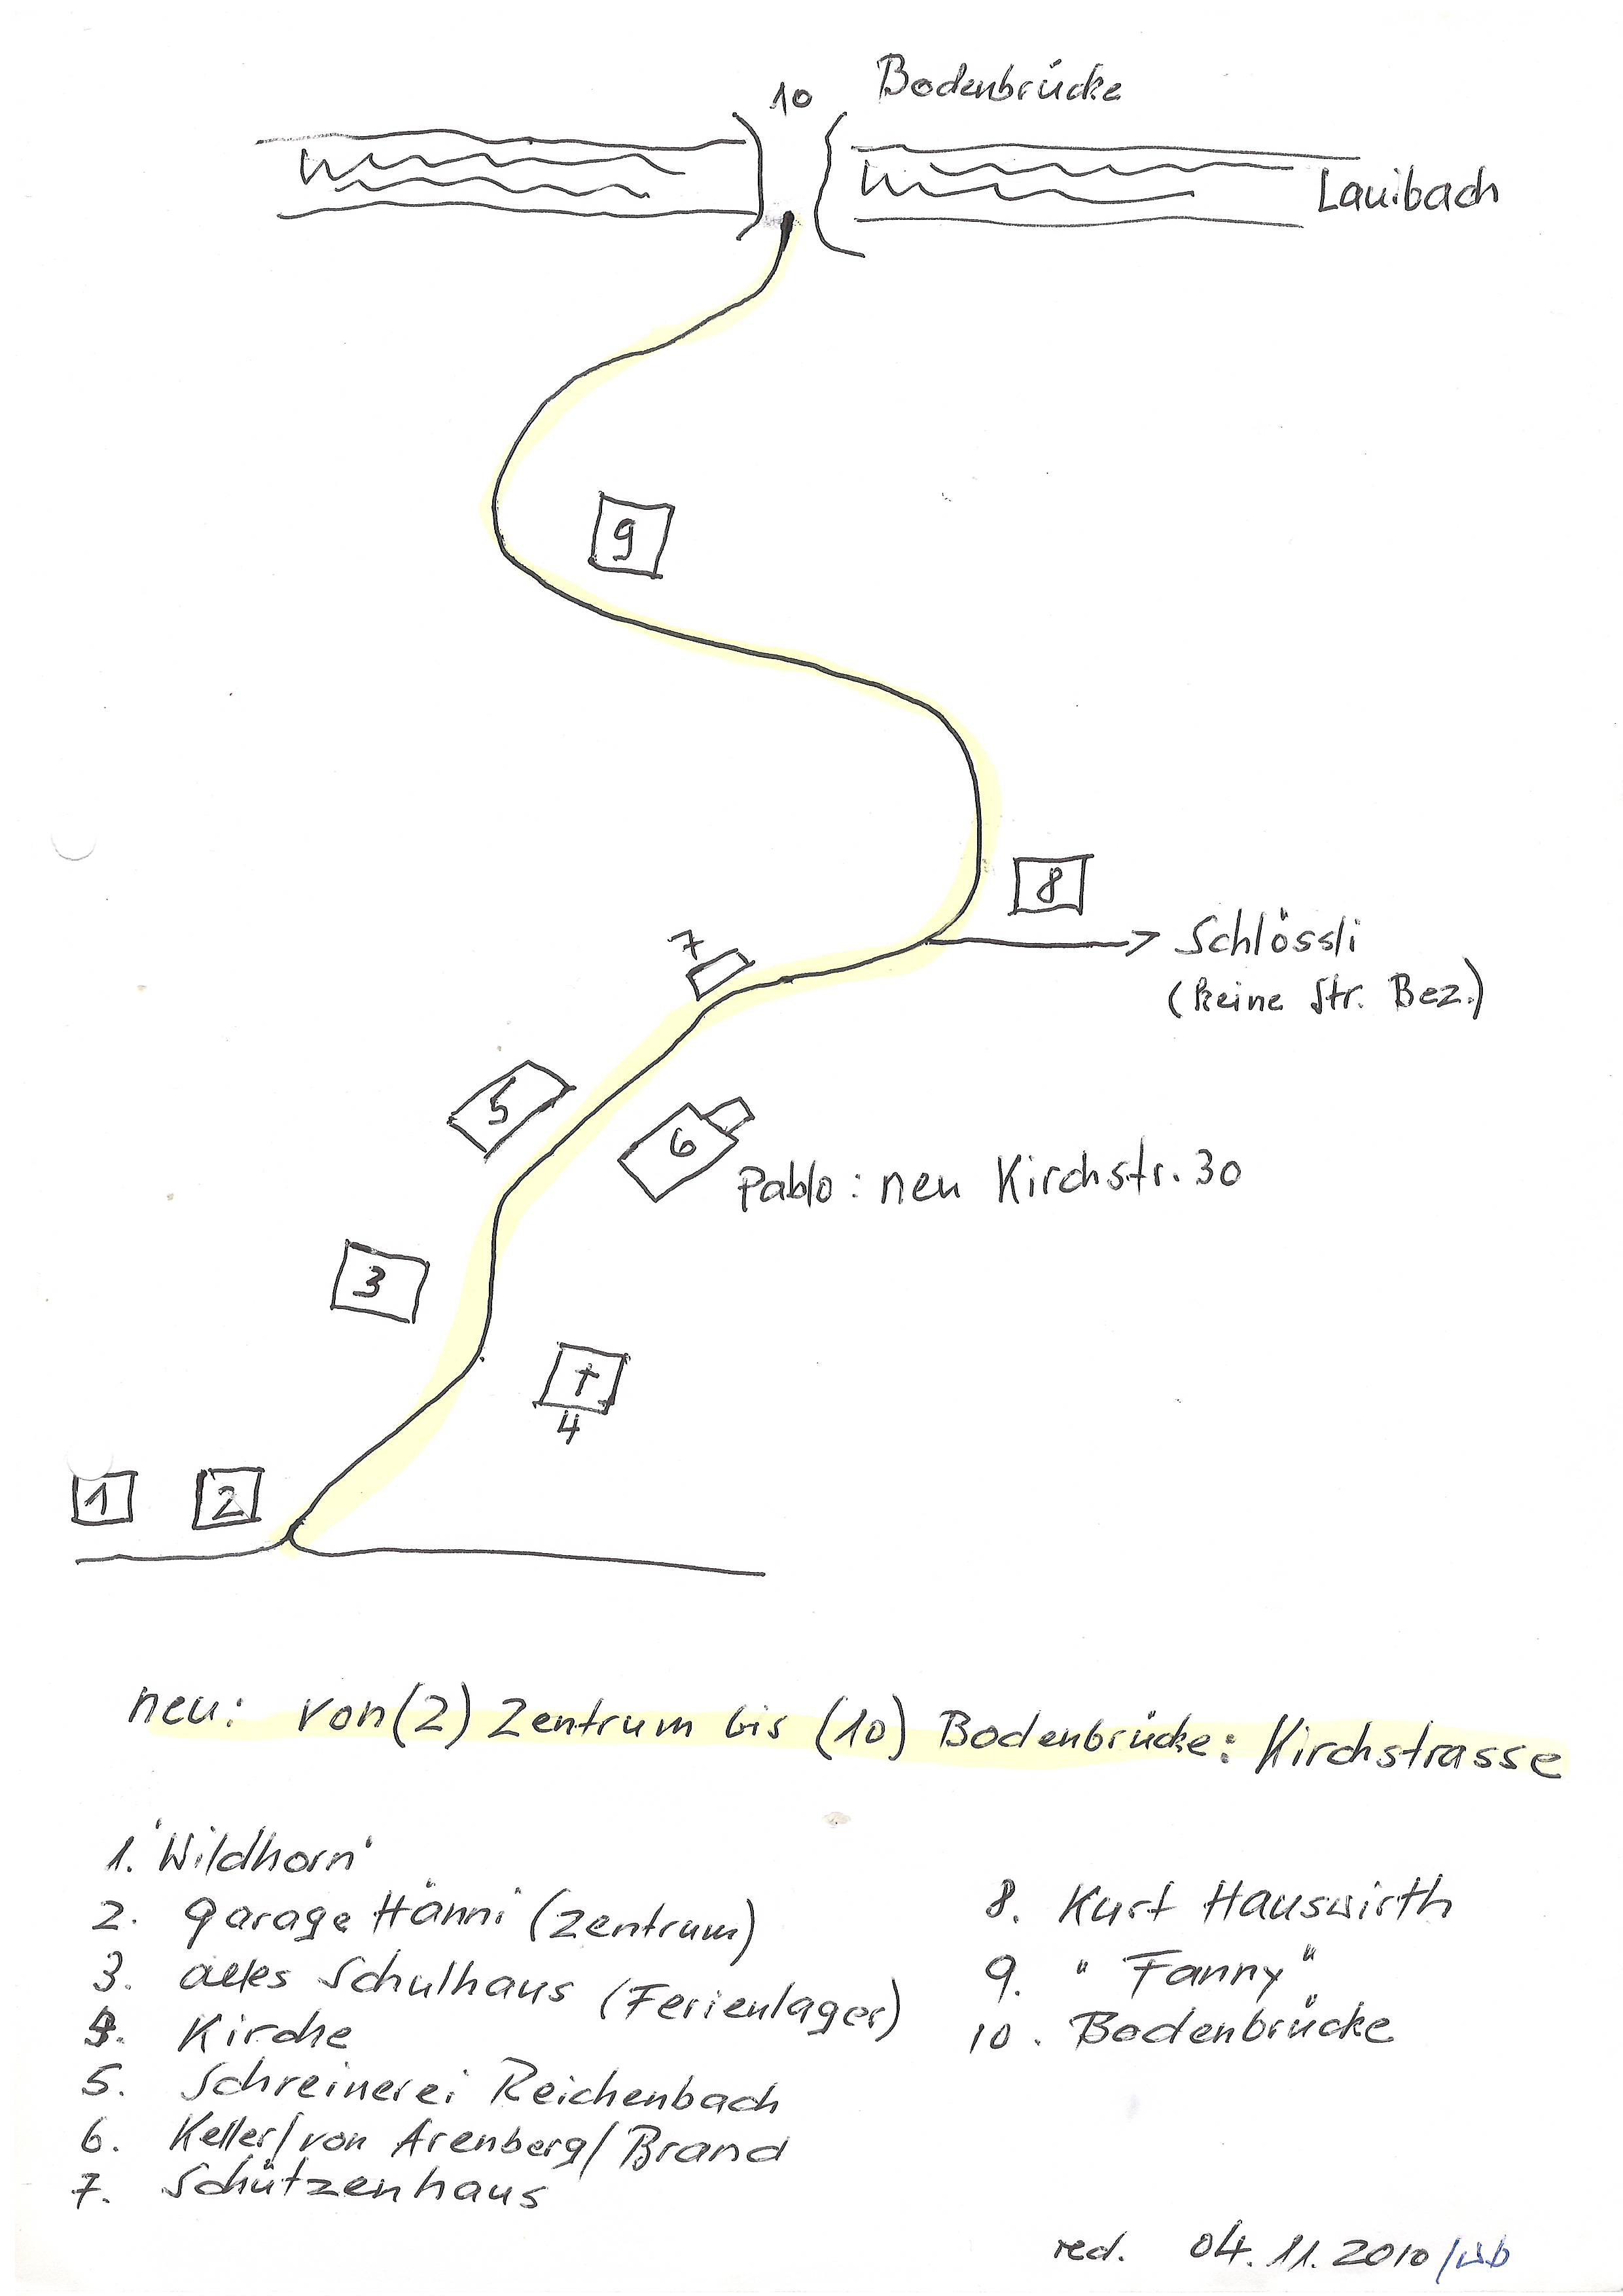 10 Bodenbrücke
Lauibach
9
8
7
Schlössli
(keine Str. Bez.)
5
6
Pablo: neu Kirchstr. 30
3
4
1 2
neu: von (2) Zentrum bis (10) Bodenbrücke: Kirchstrasse
1. 'Wildhorn'
2. Garage Hänni (Zentrum)
3. altes Schulhaus (Ferienlager)
4. Kirche
5. Schreinerei Reichenbach
6. Keller/von Arenberg/Brand
7. Schützenhaus
8. Kurt Hauswirth
9. "Fanny"
10. Bodenbrücke
red. 04.11.2010/